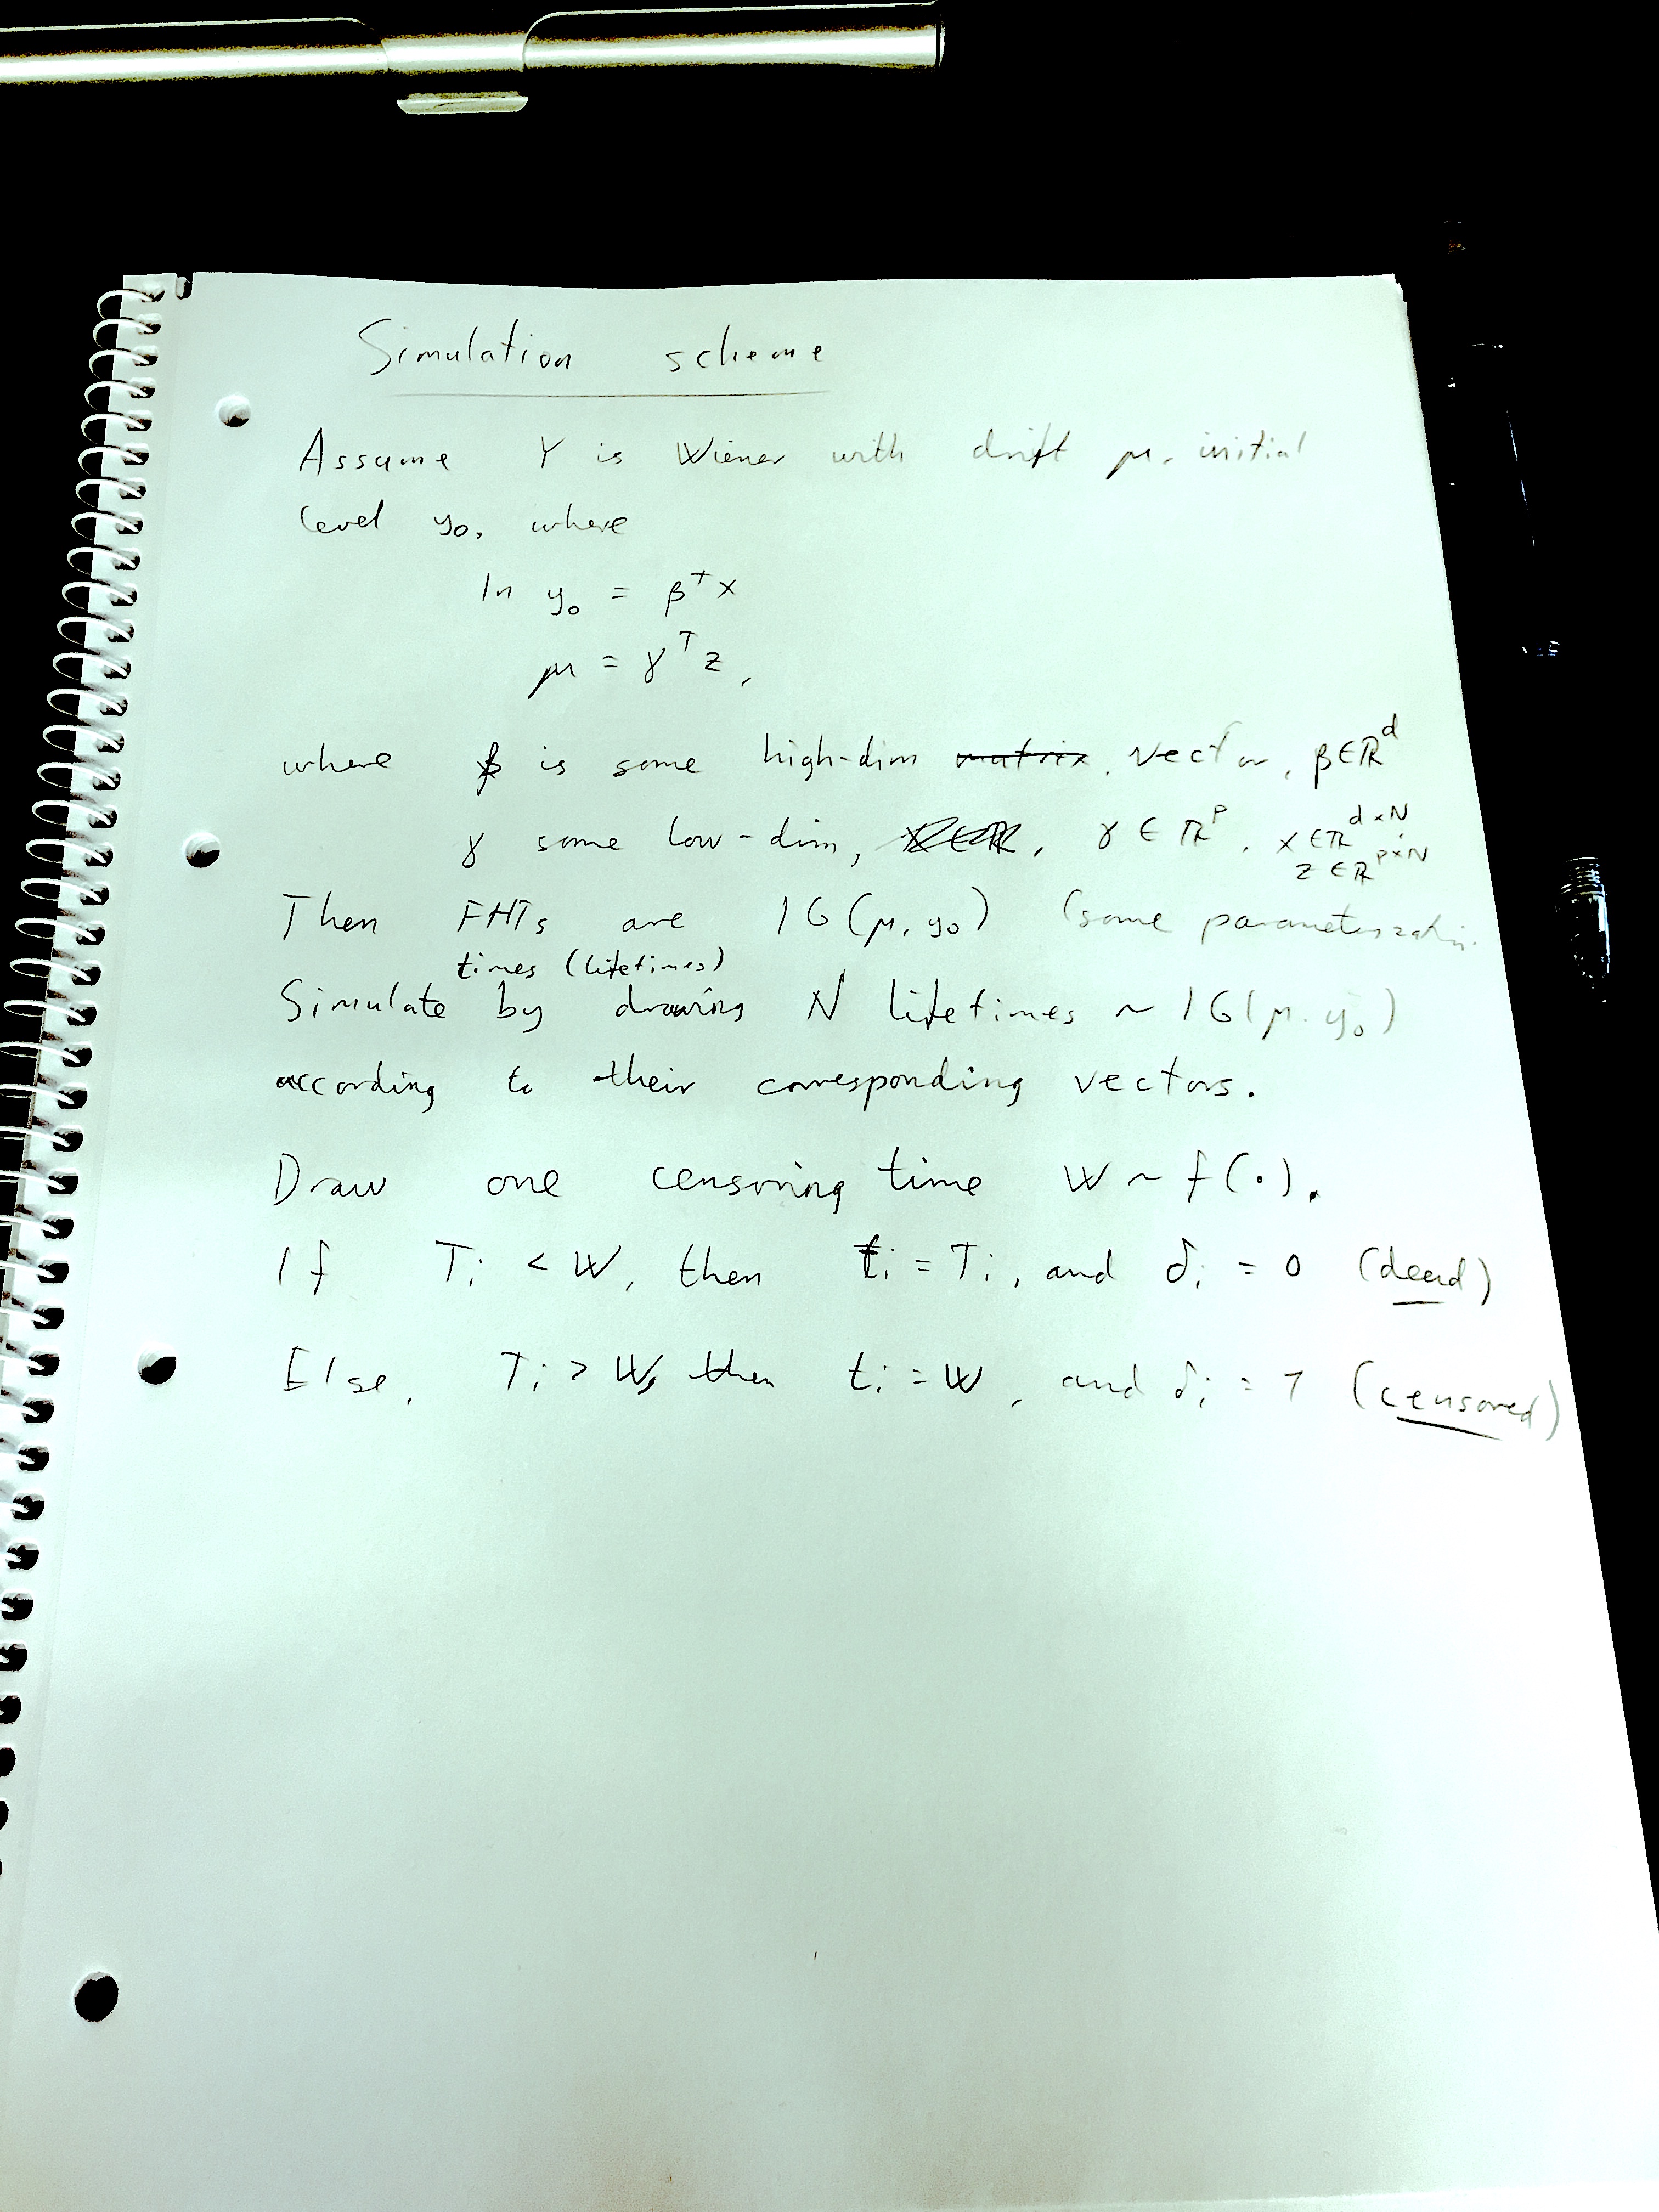 Simulation scheme
Assume Y is Wiener with drift μ, initial
level y₀, where
ln y₀ = βᵀx
μ = γᵀz,
where β is some high-dim matrix, vector, β∈ℝᵈ
γ some low-dim, γ ∈ ℝᵖ, x ∈ ℝᵈˣᴺ,
z ∈ ℝᵖˣᴺ
Then FHTs are IG(μ, y₀) (some parameterization
times (lifetimes)
Simulate by drawing N lifetimes ~ IG(μ, y₀)
according to their corresponding vectors.
Draw one censoring time W ~ f(·).
If Tᵢ < W, then tᵢ = Tᵢ, and δᵢ = 0 (dead)
Else, Tᵢ > W, then tᵢ = W, and δᵢ = 1 (censored)